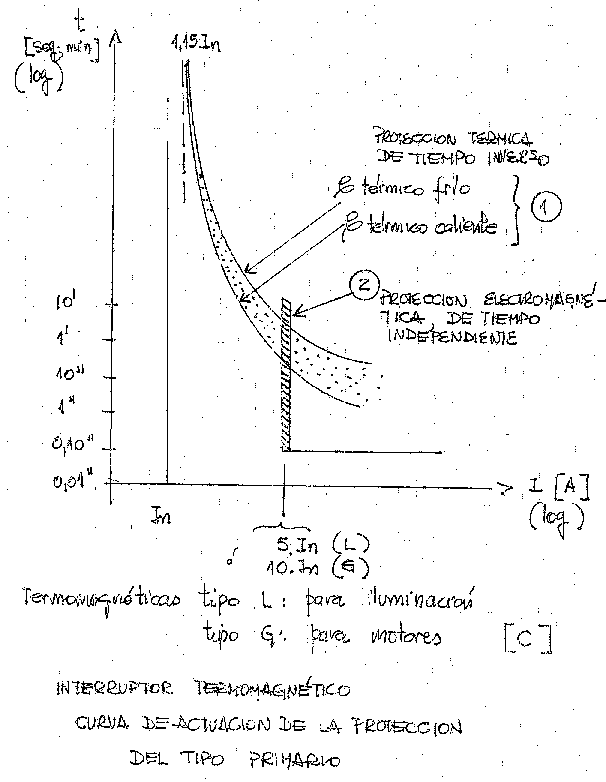 t
[seg, min]
(log)
1,15 In
PROTECCION TERMICA
DE TIEMPO INVERSO
térmico frío
térmico caliente
1
2
PROTECCION ELECTROMAGNÉ-
TICA, DE TIEMPO
INDEPENDIENTE
10'
1'
10"
1"
0,10"
0,01"
I [A]
(log)
In
5.In (L)
10.In (G)
Termomagnéticas tipo L: para iluminación
tipo G: para motores [C]
INTERRUPTOR TERMOMAGNÉTICO
CURVA DE ACTUACION DE LA PROTECCION
DEL TIPO PRIMARIO